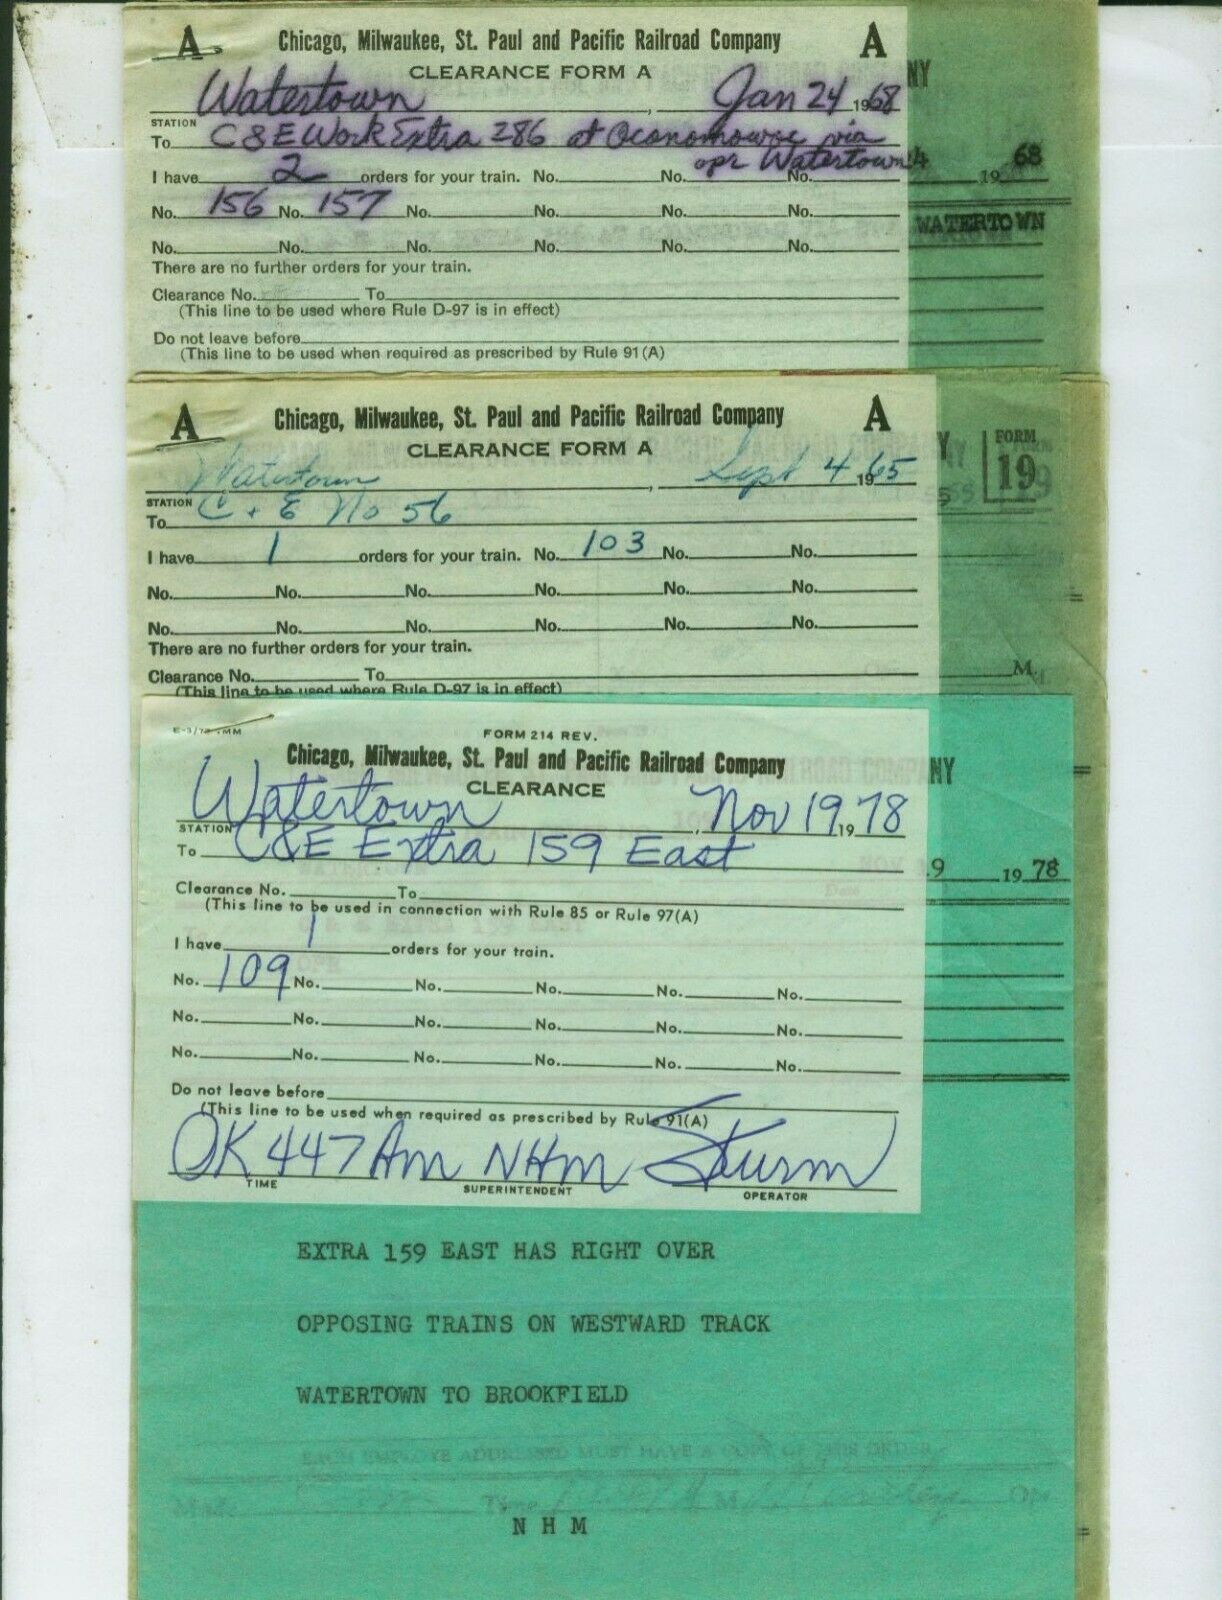 A Chicago, Milwaukee, St. Paul and Pacific Railroad Company A
CLEARANCE FORM A NY
Watertown, Jan 24 1968
STATION
To C&E Work Extra 286 at Oconomowoc via
opr Watertown 4 1968
I have 2 orders for your train. No. No. No.
No. 156 No. 157 No. No. No. No.
WATERTOWN
No. No. No. No. No. No.
There are no further orders for your train.
Clearance No. To
(This line to be used where Rule D-97 is in effect)
Do not leave before
(This line to be used when required as prescribed by Rule 91(A)
A Chicago, Milwaukee, St. Paul and Pacific Railroad Company A
CLEARANCE FORM A Y NY FORM 19
Watertown, Sept 4 1965
STATION
To C + E No 56
I have 1 orders for your train. No. 103 No. No.
No. No. No. No. No. No.
No. No. No. No. No. No.
There are no further orders for your train.
Clearance No. To M.
(This line to be used where Rule D-97 is in effect)
FORM 214 REV.
Chicago, Milwaukee, St. Paul and Pacific Railroad Company NY
CLEARANCE
Watertown, Nov 19 1978
STATION
To C&E Extra 159 East
19 1978
Clearance No. To
(This line to be used in connection with Rule 85 or Rule 97(A)
I have 1 orders for your train.
No. 109 No. No. No. No. No.
No. No. No. No. No. No.
No. No. No. No. No. No.
Do not leave before
(This line to be used when required as prescribed by Rule 91(A)
OK 447 Am NHM Sturm
TIME SUPERINTENDENT OPERATOR
EXTRA 159 EAST HAS RIGHT OVER
OPPOSING TRAINS ON WESTWARD TRACK
WATERTOWN TO BROOKFIELD
EACH EMPLOYE ADDRESSED MUST HAVE A COPY OF THIS ORDER
Made Time M Opr
N H M